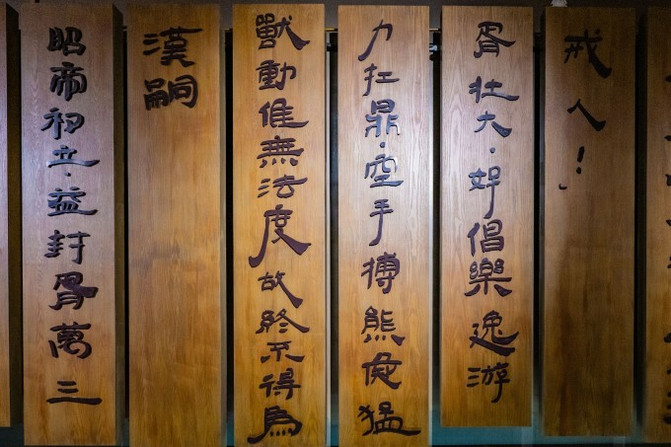 戒人！」
胥壯大·好倡樂逸游
力扛鼎·空手搏熊彘猛
獸動作無法度故終不得爲
漢嗣
昭帝初立·益封胥萬三